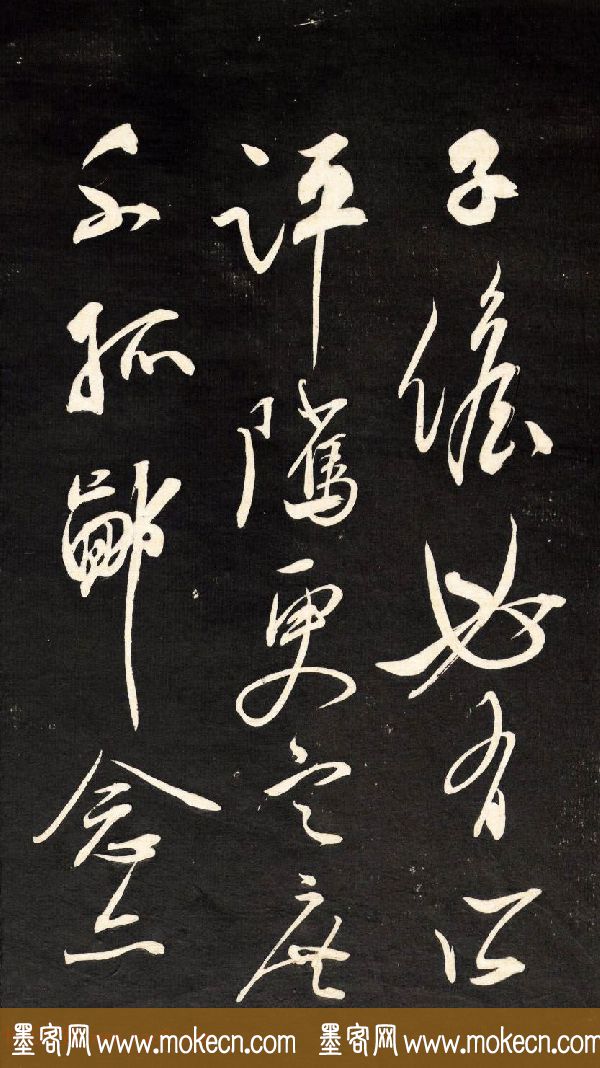 子儋必有公
評隲更定庶
不孤鄙念上
墨客网 www.mokecn.com 墨客网 www.mokecn.com